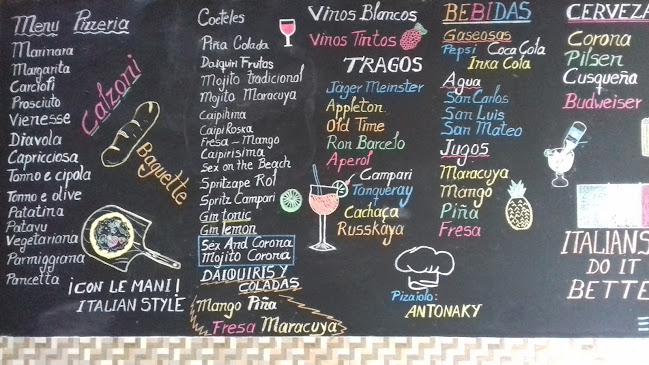 Menu Pizzeria
Marinara
Margarita
Carciofi
Prosciuto
Viennesse
Diavola
Capricciosa
Tonno e cipola
Tonno e olive
Patatina
Patavu
Vegetariana
Parmiggiana
Pancetta
Calzoni
Baguette
¡CON LE MANI!
ITALIAN STYLE
Cocteles
Piña Colada
Daiquiri Frutas
Mojito tradicional
Mojito Maracuya
Caipihina
CaipiRoska
Fresa - Mango
Caipirisima
Sex on the Beach
Spritzape Rol
Spritz Campari
Gin tonic
Gin lemon
Sex And Corona
Mojito Corona
DAIQUIRIS Y
COLADAS
Mango Piña
Fresa Maracuya
Vinos Blancos
Vinos Tintos
TRAGOS
Jäger Meinster
Appleton
Old Time
Ron Barcelo
Aperol
Campari
Tanqueray
Cachaça
Russkaya
Pizaiolo:
ANTONAKY
BEBIDAS
Gaseosas
Pepsi Coca Cola
Inka Cola
Agua
San Carlos
San Luis
San Mateo
Jugos
Maracuya
Mango
Piña
Fresa
CERVEZA
Corona
Pilsen
Cusqueña
Budweiser
ITALIANS
DO IT
BETTE